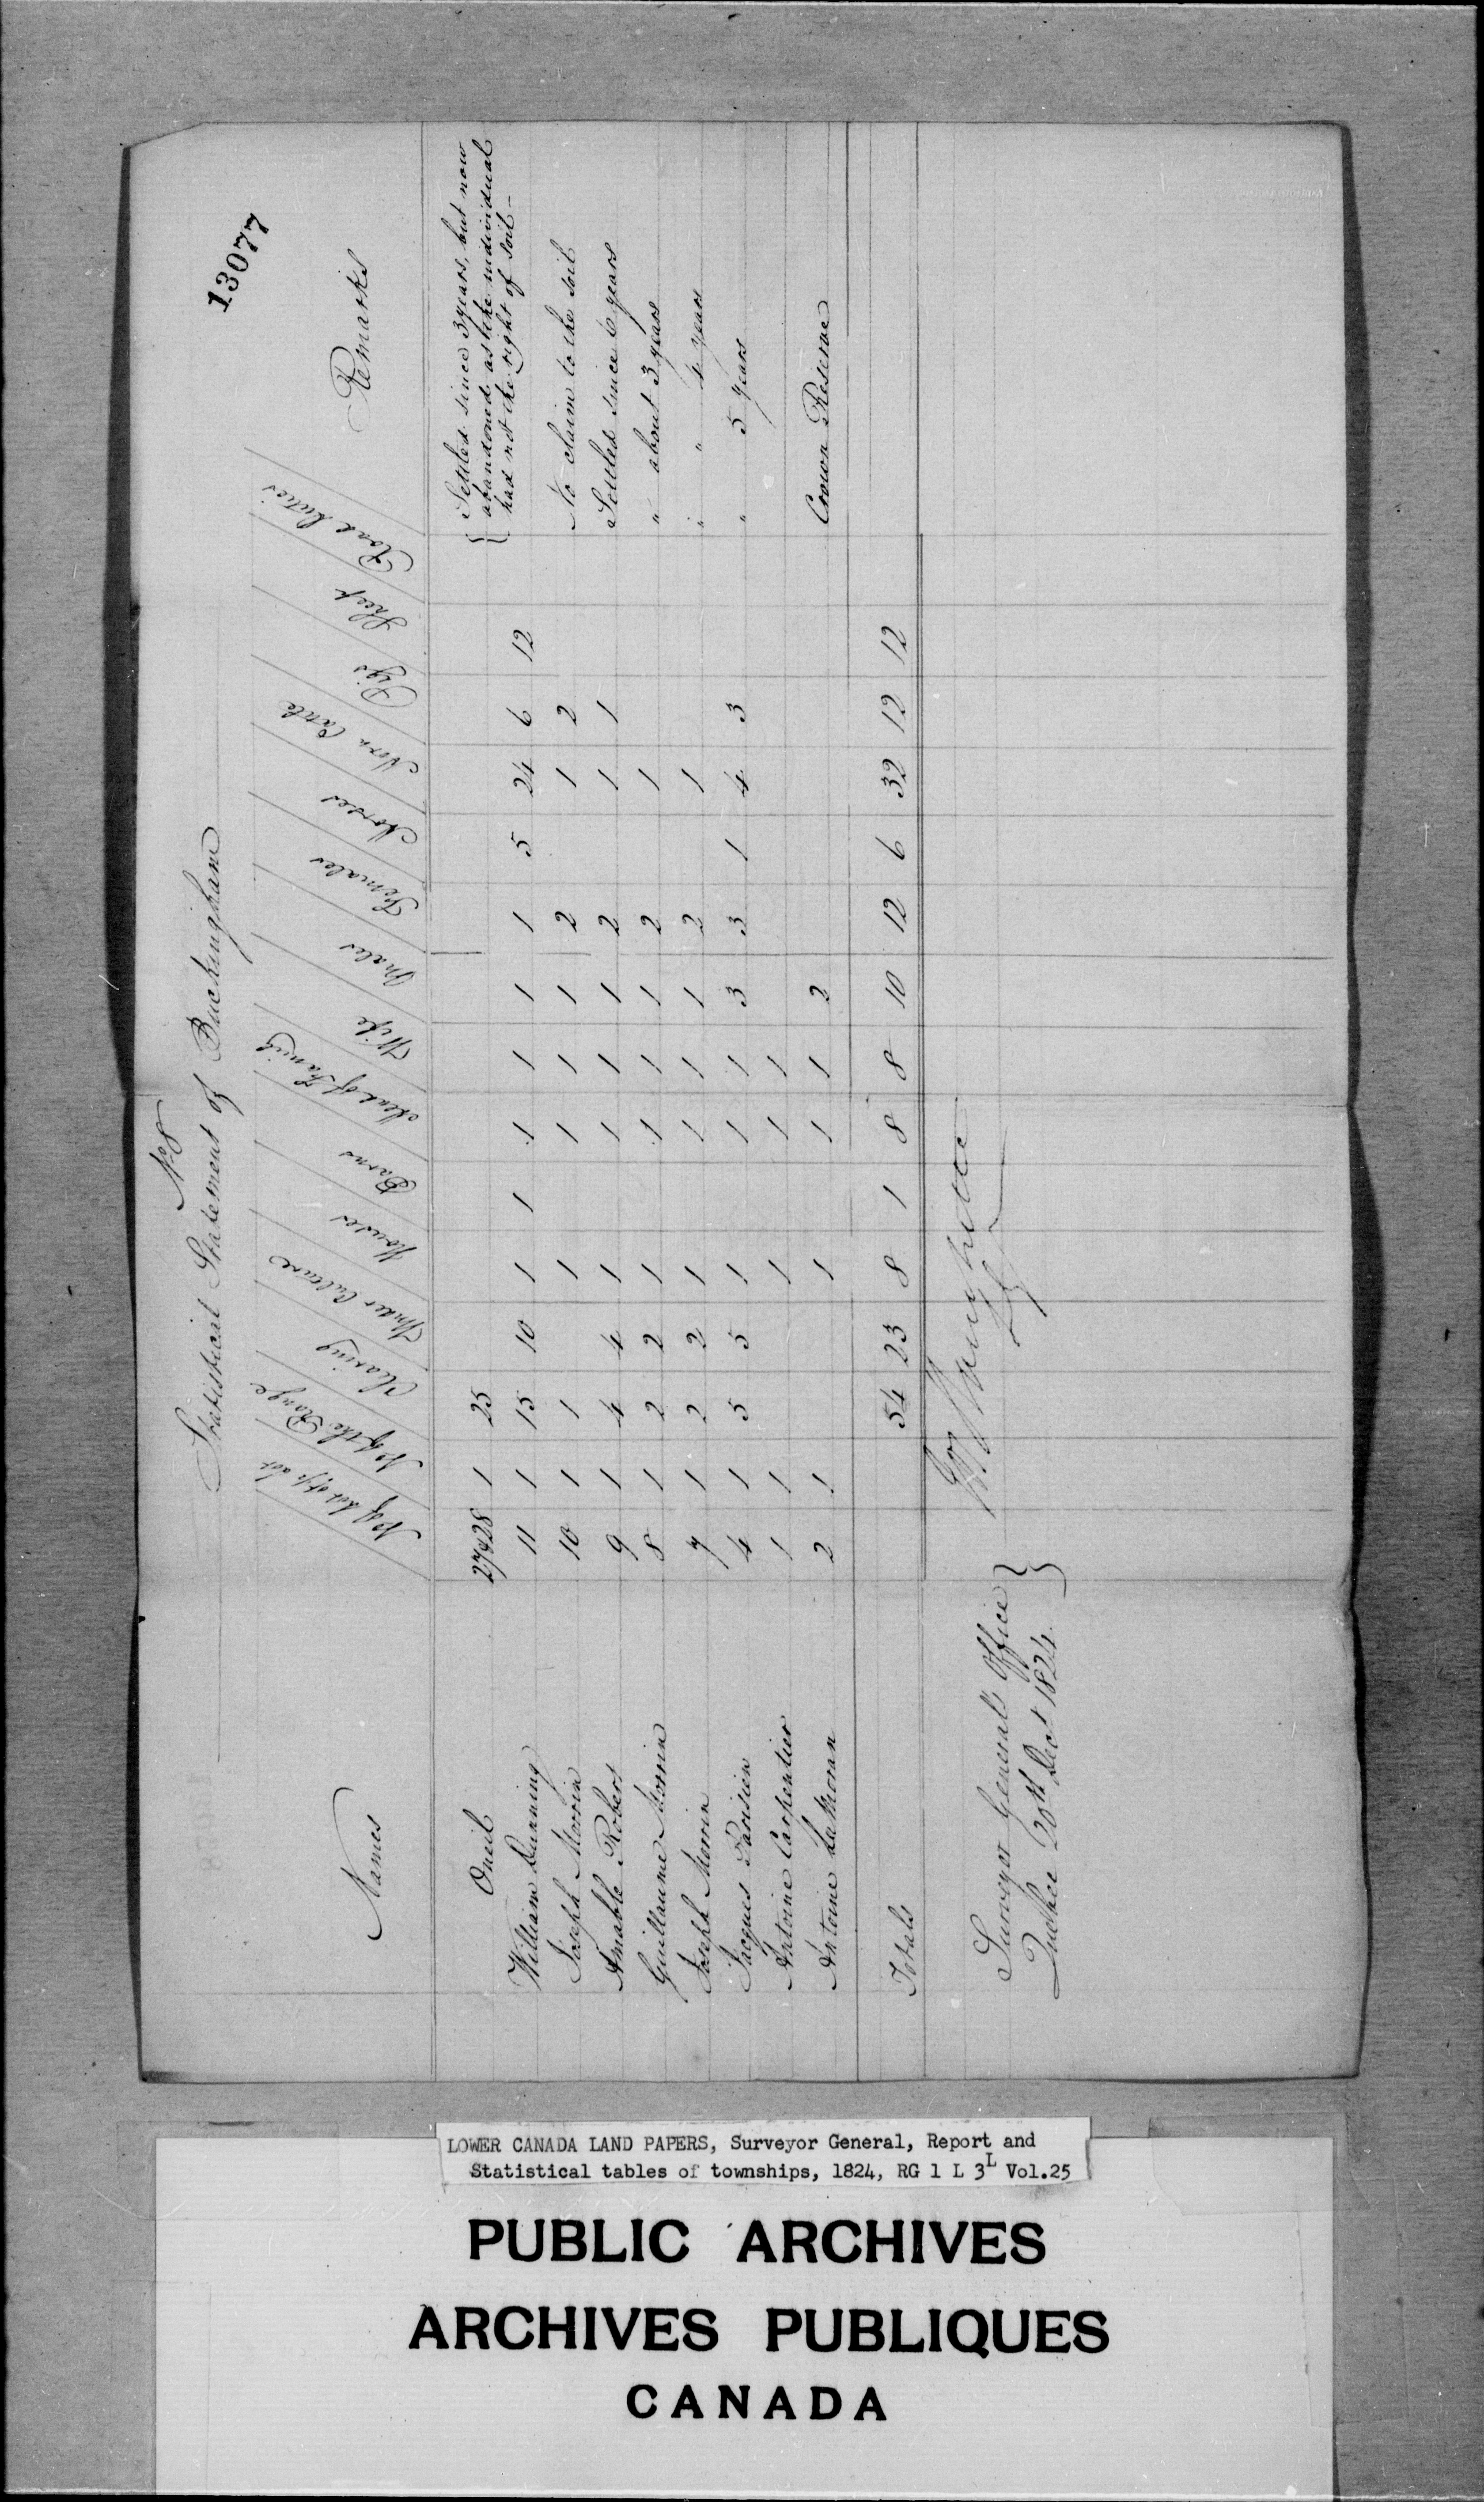 13077
No. 8
Statistical Statement of Buckingham
Names | No. of the Range | Clearing | Under Culture | Houses | Barns | Head of Family | Wife | Males | Females | Horses | Horn Cattle | Pigs | Sheep | Road Duties | Remarks
Oneil 27&28 1 25 { Settled since 3 years, but now
abandoned as the individual
had not the right of soil -
William Dunning 11 1 15 10 1 1 1 1 1 1 5 24 6 12
Joseph Morrin 10 1 1 1 1 1 1 2 1 2 No claim to the soil
Amable Robert 9 1 4 4 1 1 1 1 2 1 1 Settled since 6 years
Guillaume Morrin 8 1 2 2 1 1 1 1 2 1 " about 3 years
Joseph Morrin 7 1 2 2 1 1 1 1 2 1 " " 4 years
Jacques Parisien 4 1 5 5 1 1 1 3 3 1 4 3 " 5 years
Antoine Carpentier 1 1 1 1 1
Antoine 2 1 1 1 1 2 Crown Reserve
Totals 54 23 8 1 8 8 10 12 6 32 12 12
Surveyor General's Office }
Quebec 20th Dect 1824. }
LOWER CANADA LAND PAPERS, Surveyor General, Report and
Statistical tables of townships, 1824, RG 1 L 3L Vol.25
PUBLIC ARCHIVES
ARCHIVES PUBLIQUES
CANADA